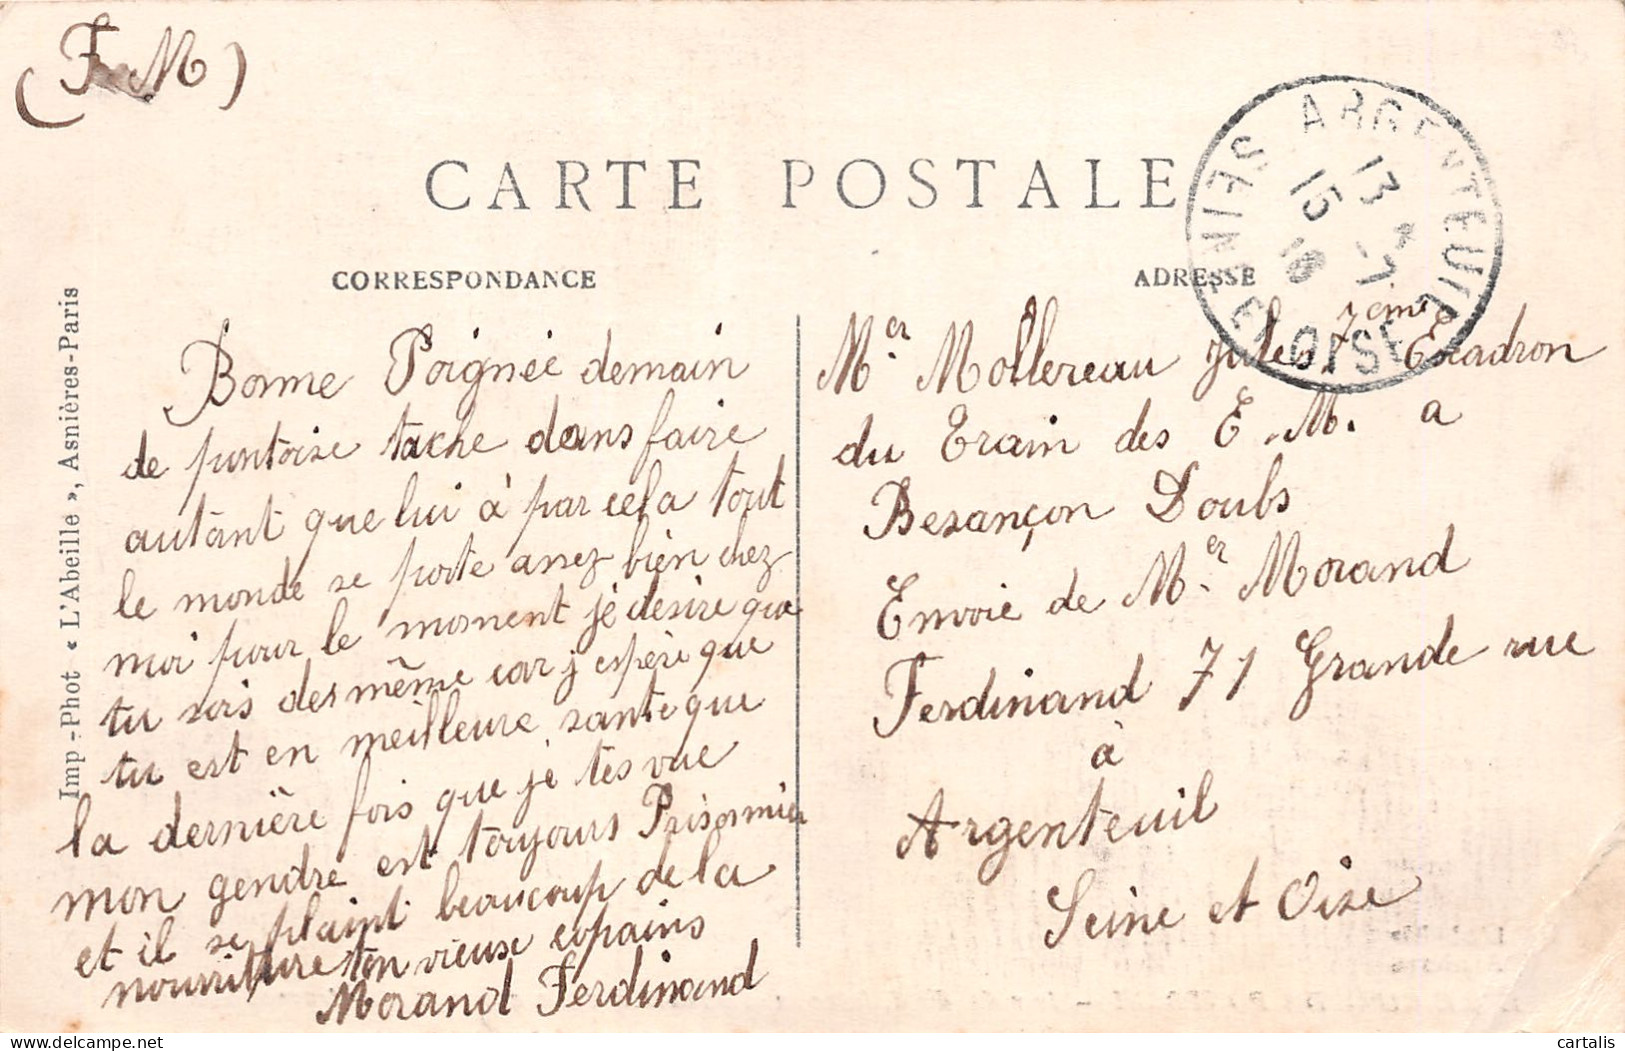 (F M)
CARTE POSTALE
ARGENTEUIL
SEINE ET OISE
13
15 -7
18
CORRESPONDANCE
ADRESSE
Imp-Phot « L'Abeille », Asnières-Paris
Bonne Poignée demain
de pontoise tache dans faire
autant que lui à par cela tout
le monde se porte assez bien chez
moi pour le moment je désire que
tu sois des même car j espère que
tu est en meilleure santé que
la dernière fois que je tes vue
mon gendre est toujours Prisonnier
et il se plaint beaucoup de la
nourriture ton vieuse copains
Morand Ferdinand
Mer Mollereau Jules 7eme Escadron
du Train des E. M. a
Besançon Doubs
Envoie de Mer Morand
Ferdinand 71 Grande rue
à
Argenteuil
Seine et Oise
cartalis
delcampe.net